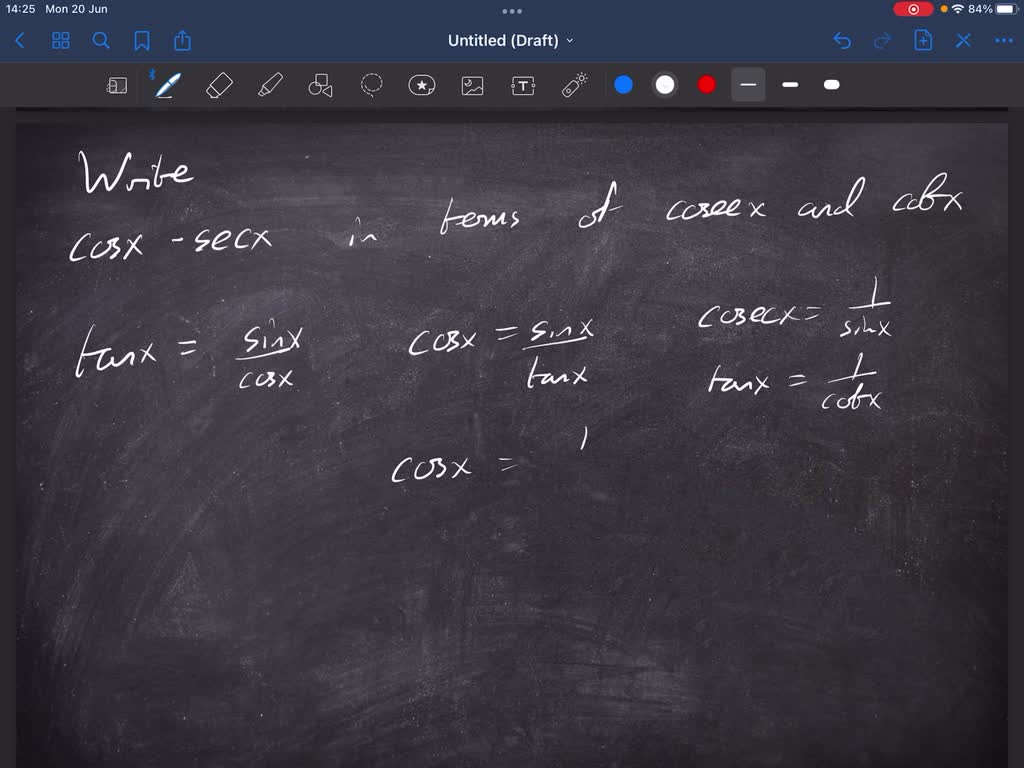 14:25 Mon 20 Jun 84%
Untitled (Draft)
T
Write
cosx - secx in terms of cosecx and cotx
tanx = sinx/cosx
cosx = sinx/tanx
cosecx = 1/sinx
tanx = 1/cotx
cosx = 1